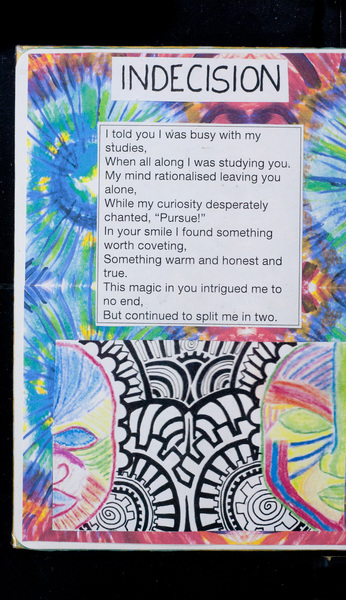 INDECISION
I told you I was busy with my
studies,
When all along I was studying you.
My mind rationalised leaving you
alone,
While my curiosity desperately
chanted, “Pursue!”
In your smile I found something
worth coveting,
Something warm and honest and
true.
This magic in you intrigued me to
no end,
But continued to split me in two.